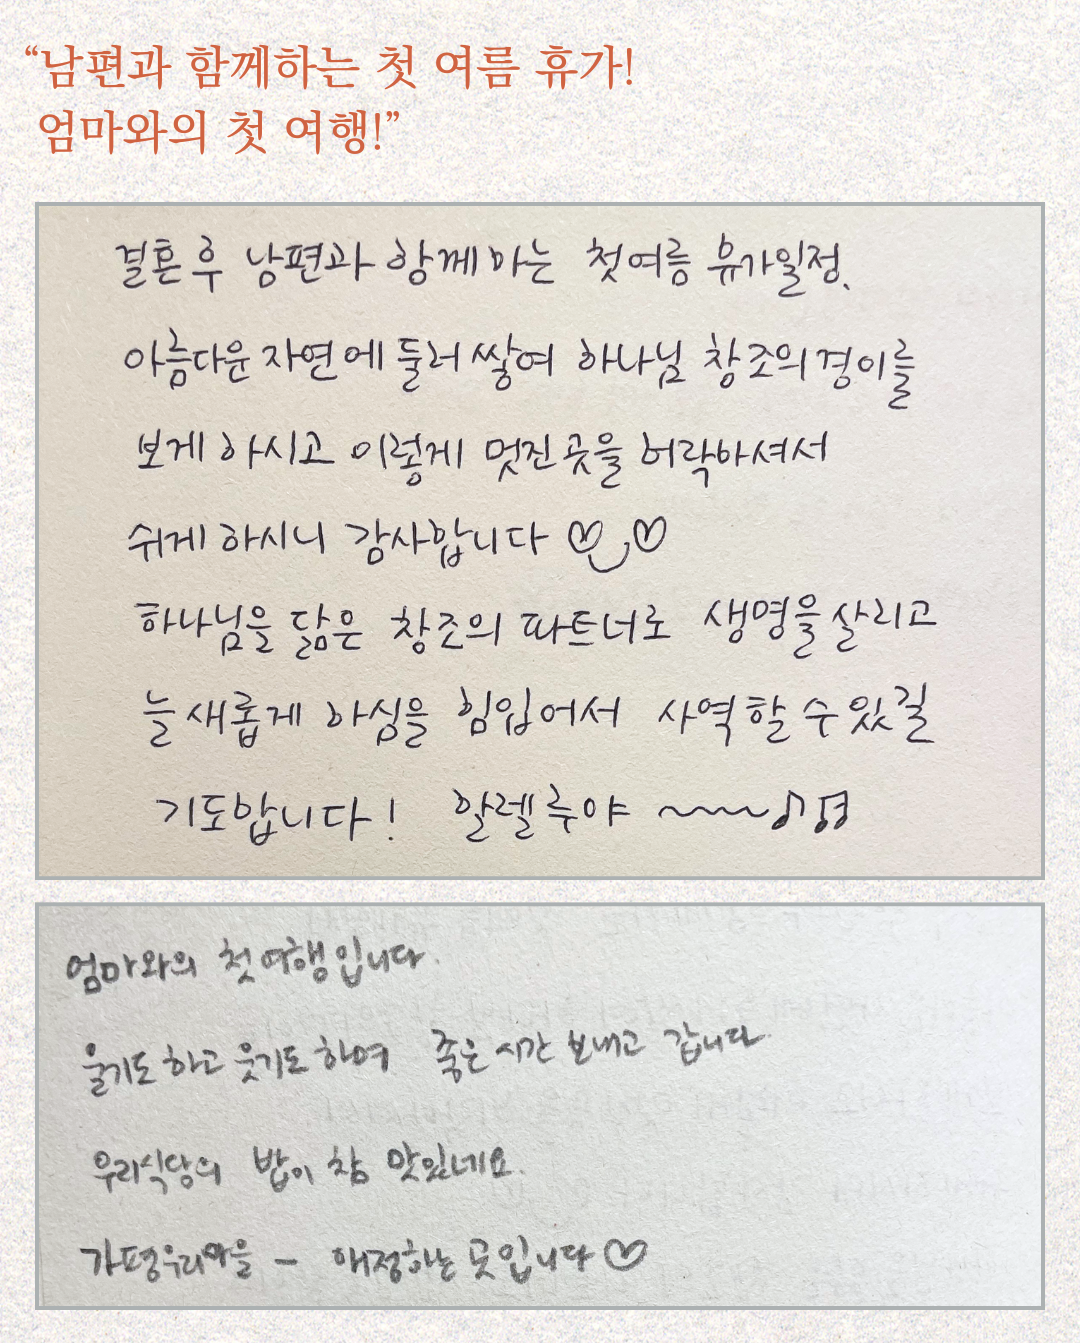 “남편과 함께하는 첫 여름 휴가!
엄마와의 첫 여행!”
결혼 후 남편과 함께 하는 첫 여름 휴가일정.
아름다운 자연에 둘러 쌓여 하나님 창조의 경이를
보게 하시고 이렇게 멋진 곳을 허락하셔서
쉬게 하시니 감사합니다 ♡‿♡
하나님을 닮은 창조의 파트너로 생명을 살리고
늘 새롭게 하심을 힘입어서 사역할 수 있길
기도합니다! 할렐루야 ~~~♪♫
엄마와의 첫 여행입니다.
울기도 하고 웃기도 하며 좋은 시간 보내고 갑니다.
우리식당의 밥이 참 맛있네요.
가평우리마을 - 애정하는 곳입니다♡